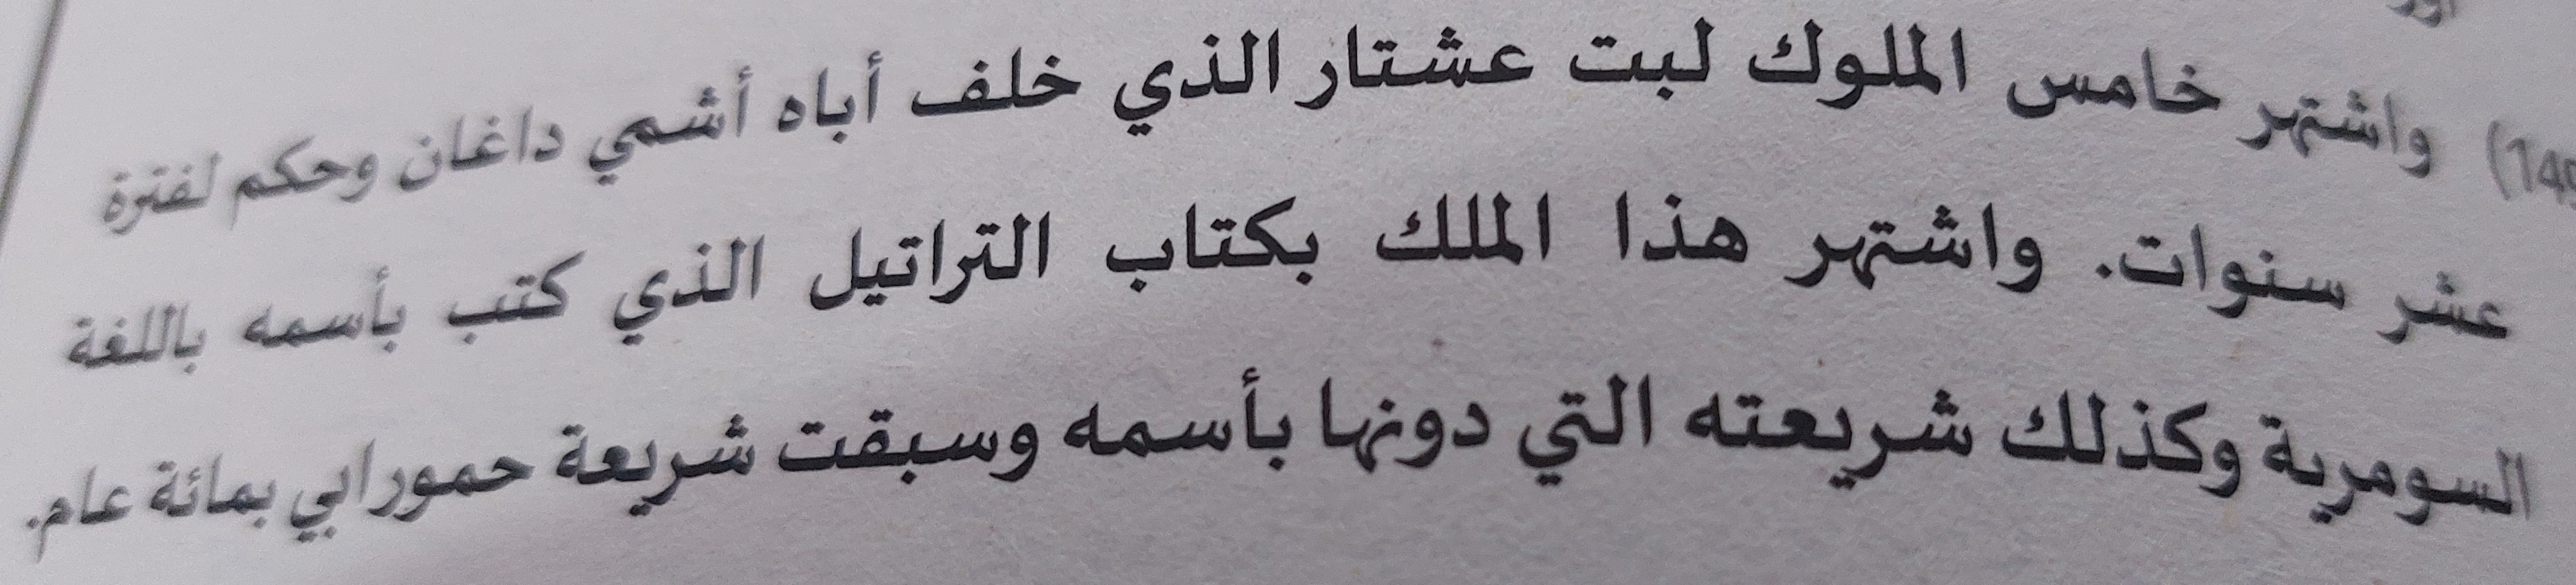 واشتهر خامس الملوك لبت عشتار الذي خلف أباه أشمي داغان وحكم لفترة
عشر سنوات. واشتهر هذا الملك بكتاب التراتيل الذي كتب بأسمه باللغة
السومرية وكذلك شريعته التي دونها بأسمه وسبقت شريعة حمورابي بمائة عام.